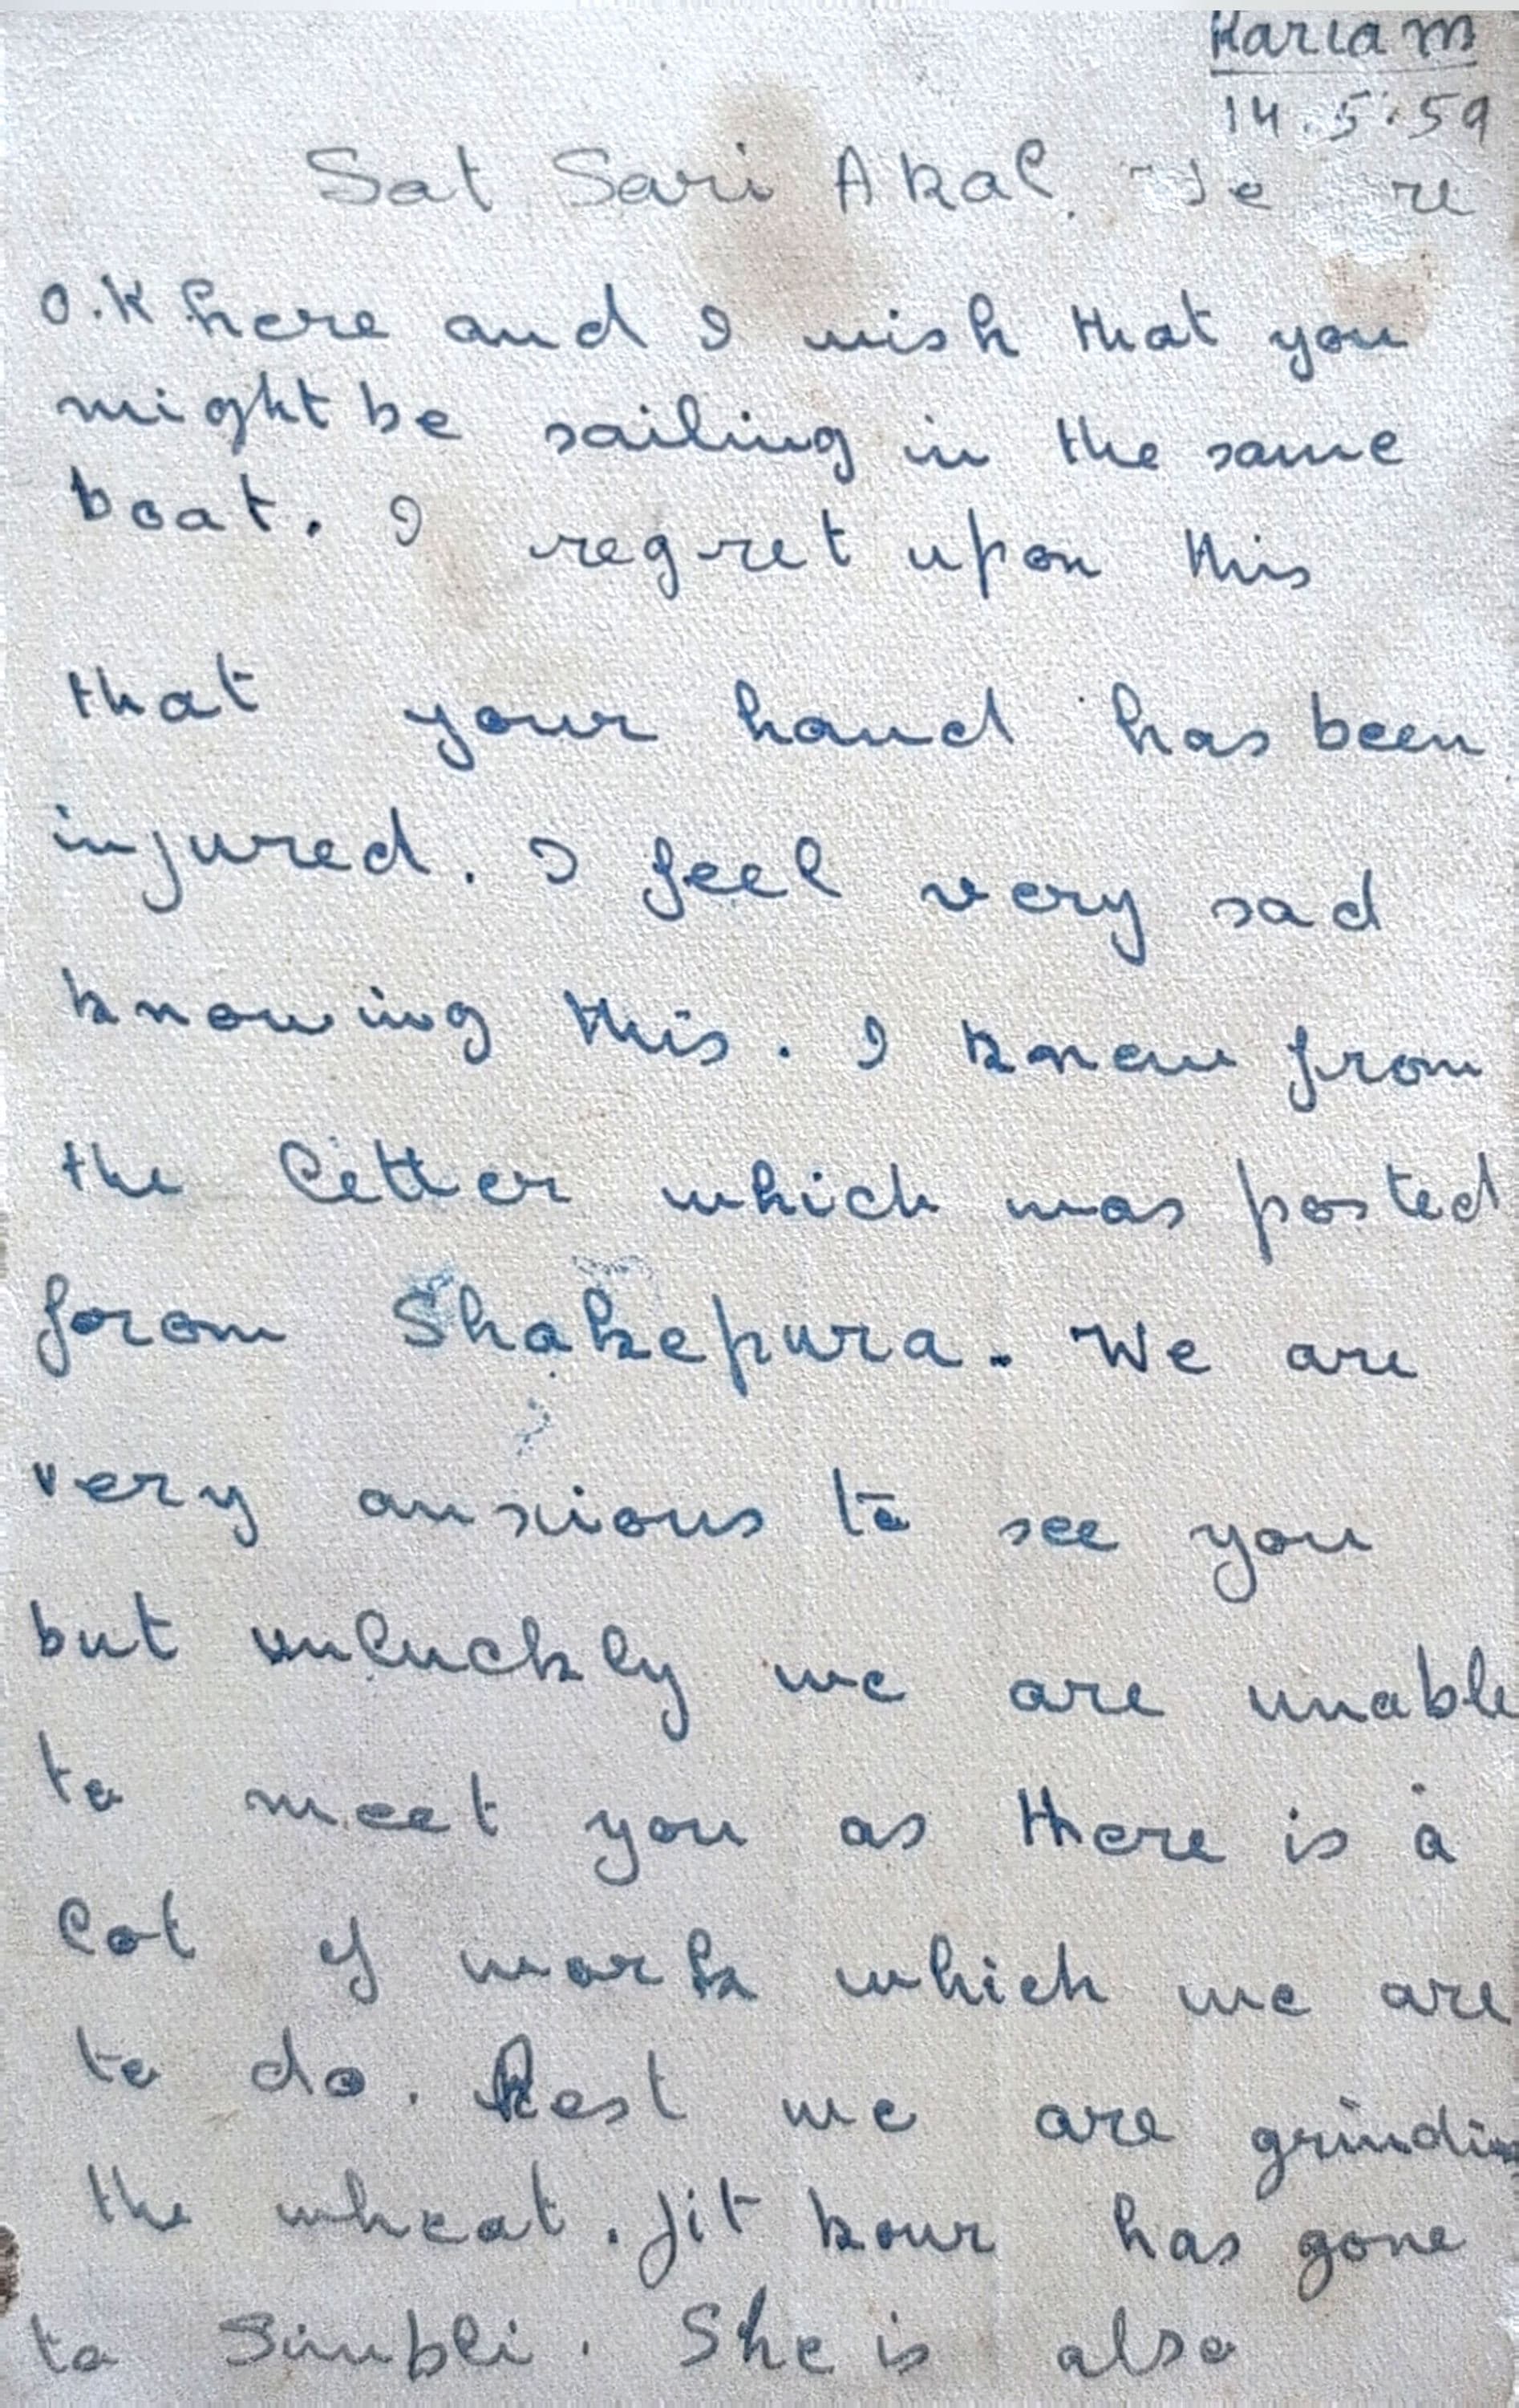 Kariam
14.5.59
Sat Sari Akal.
O.K here and I wish that you
might be sailing in the same
boat. I regret upon this
that your hand has been
injured. I feel very sad
knowing this. I knew from
the letter which was posted
from Shakepura. We are
very anxious to see you
but unluckly we are unable
to meet you as there is a
lot of work which we are
to do. Rest we are grinding
the wheat. Jit kour has gone
to Simbli. She is also